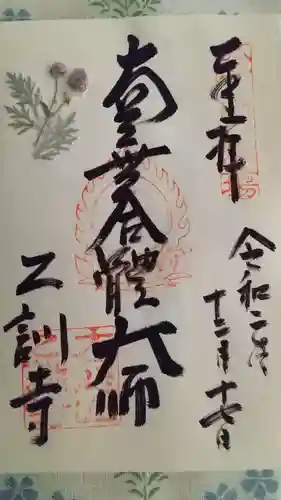 奉拝
令和二年
十二月十七日
南無合體大師
乙訓寺